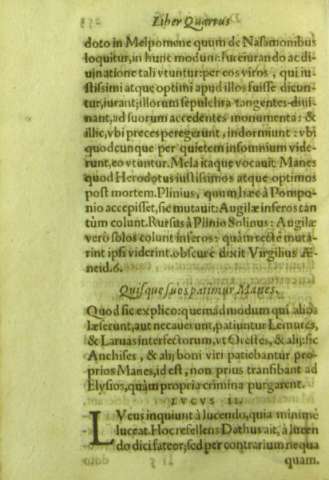 Liber Quartus
doto in Melpomene quum de Nasamonibus
loquitur, in hunc modum: Iureiurando ac di-
uinatione tali vtuntur: per eos viros, qui iu-
stissimi atque optimi apud illos fuisse dicun-
tur, iurant; illorum sepulchra tangentes: diui-
nant, ad suorum accedentes monumenta: &
illic, vbi preces peregerunt, indormiunt: vbi
quodcunque per quietem insomnium vide-
runt, eo vtuntur. Mela itaque vocauit Manes
quod Herodotus iustissimos atque optimos
post mortem. Plinius, quum hæc à Pompo-
nio accepisset, sic mutauit: Augilæ inferos tan
tùm colunt. Rursus à Plinio Solinus: Augilæ
verò solos colunt inferos: quàm rectè muta-
rint ipsi viderint. obscurè dixit Virgilius Æ-
neid. 6.
Quisque suos patimur Manes.
Quod sic explico: quemadmodum qui alios
læserunt, aut necauerunt, patiuntur Lemures,
& Laruas interfectorum, vt Orestes, & alij: sic
Anchises, & alij boni viri patiebantur pro-
prios Manes, id est, non prius transibant ad
Elysios, quàm propria crimina purgarent.
LVCVS II.
LVcus inquiunt à lucendo, quia minimè
luceat. Hoc refellens Dathus ait, à lucen
do dici fateor; sed per contrarium nequa
quam.
doto